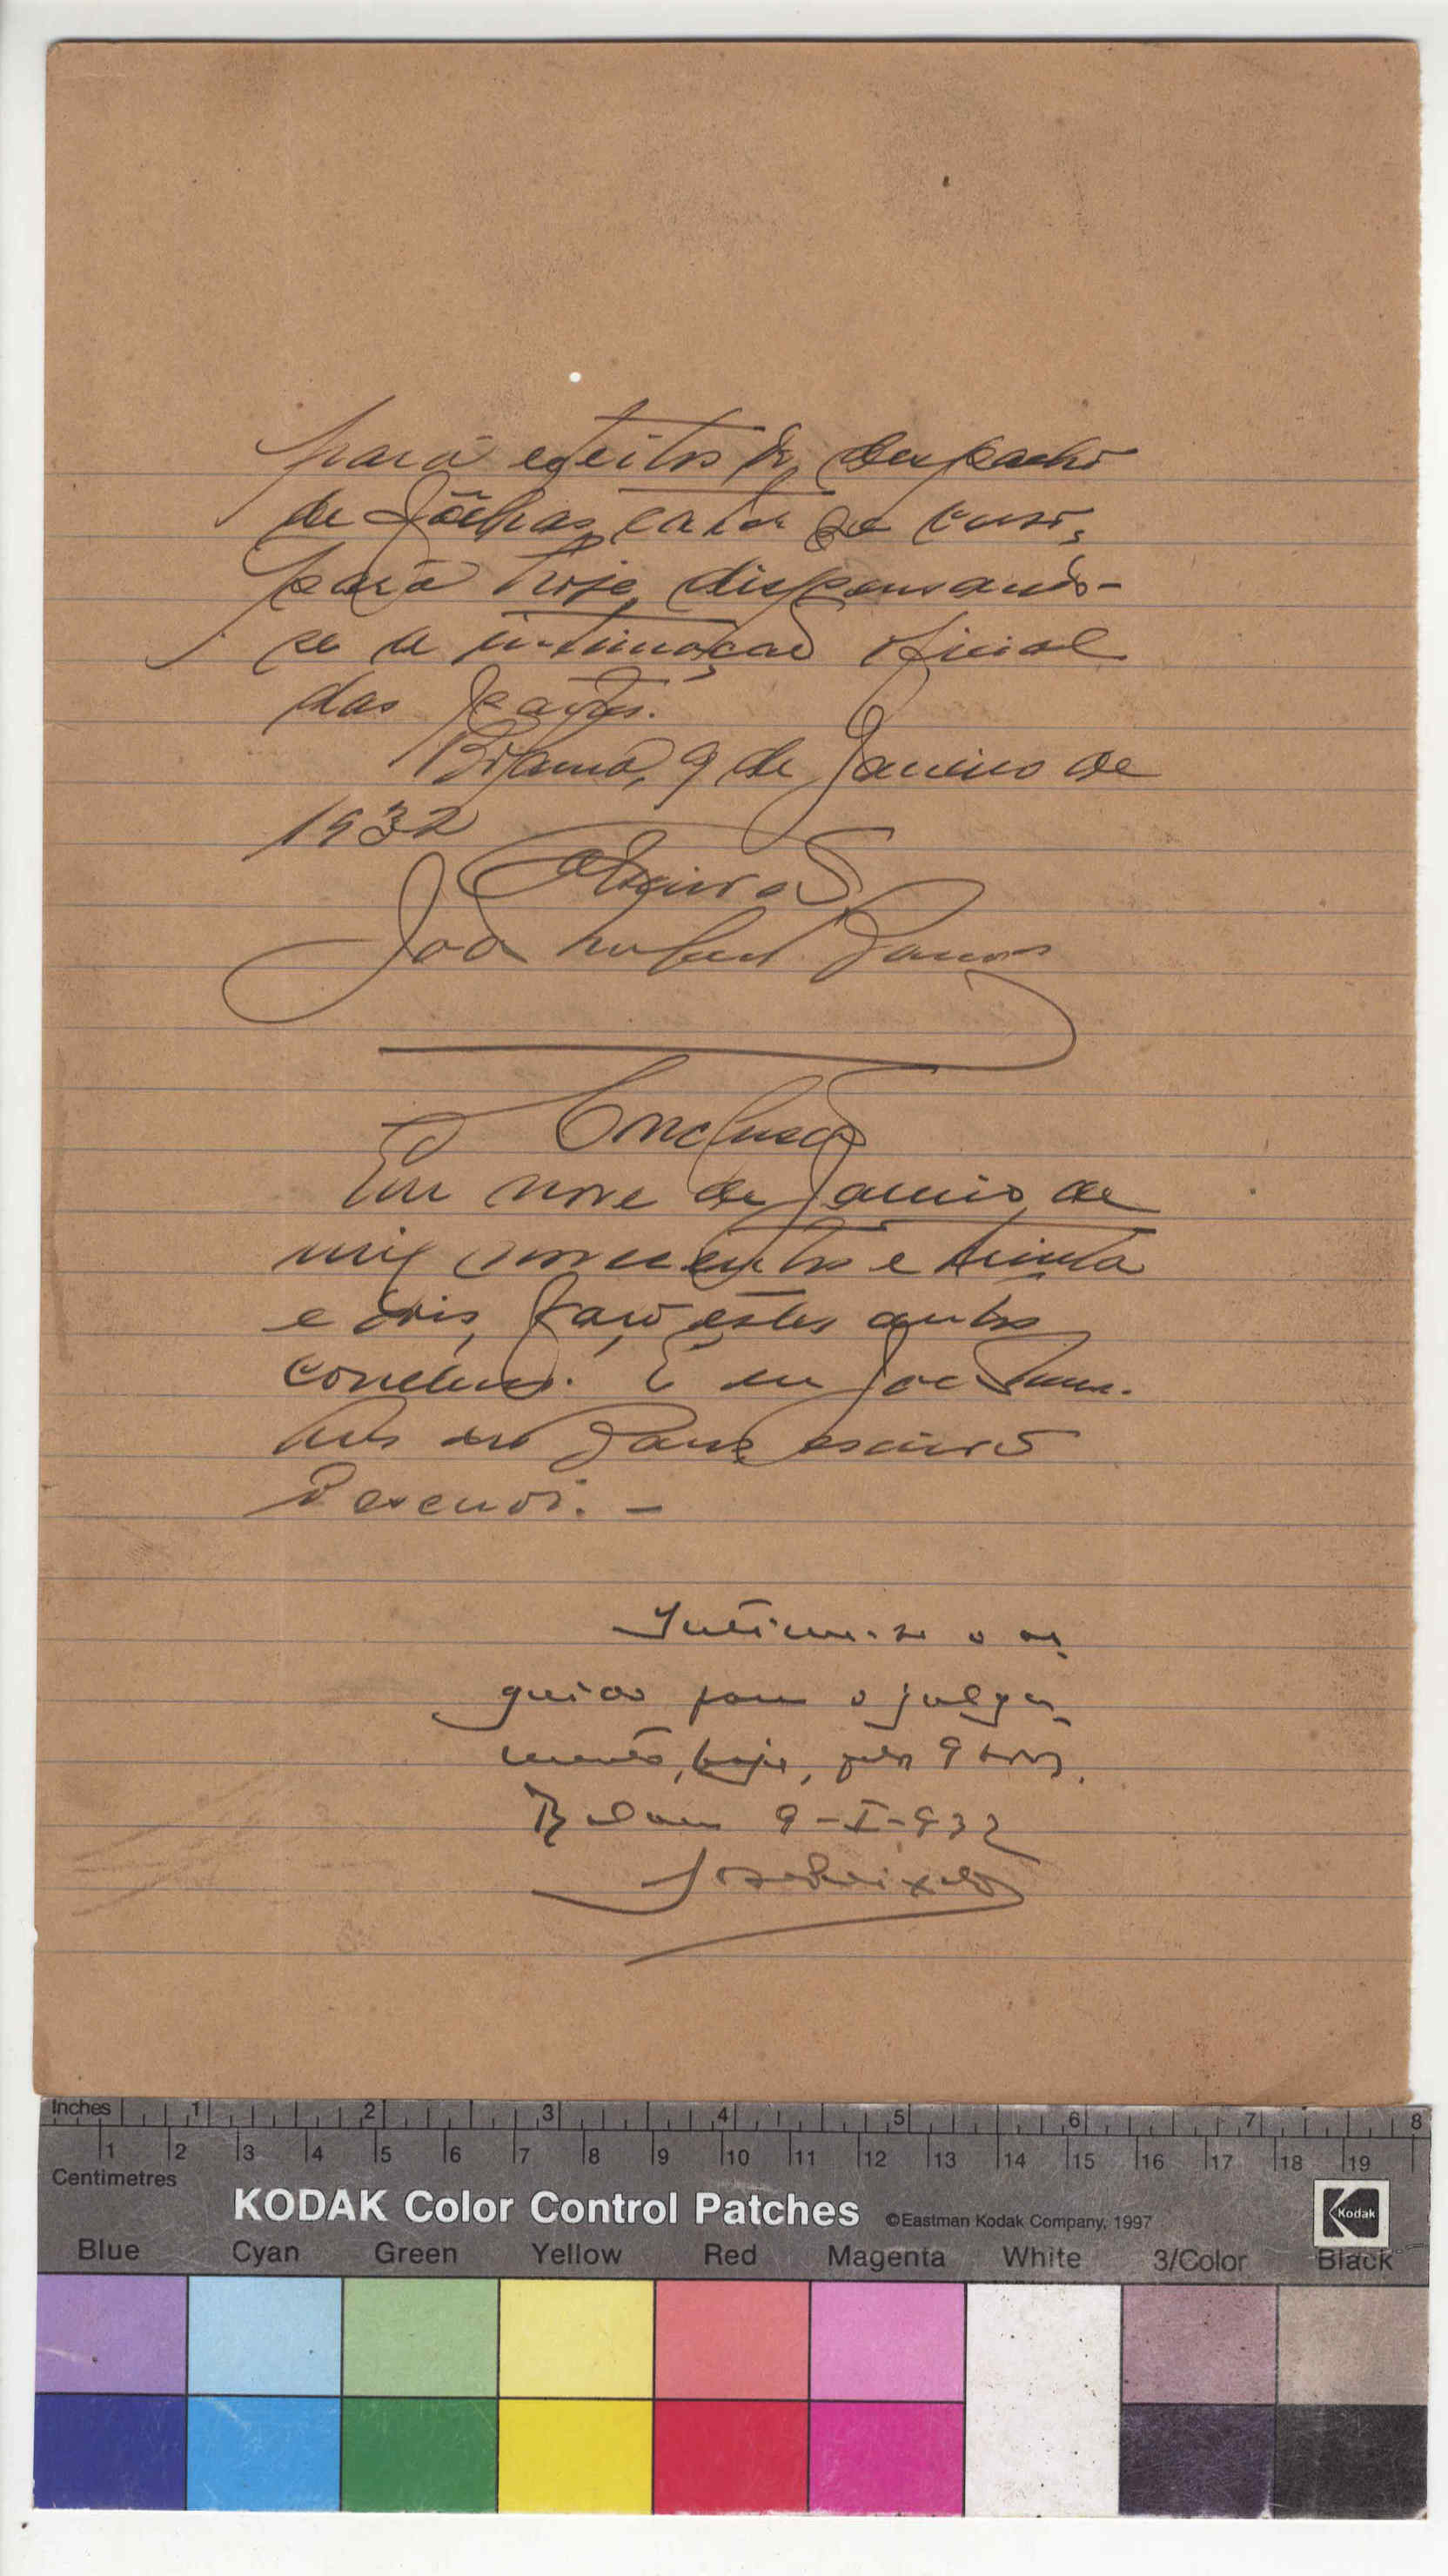 para efeitos do despacho
de fôlhas, catorze verso,
para hoje, dispensando-
se a intimação oficial
das partes.
Bolama, 9 de Janeiro de
1932
O Escrivão
João
Conclusão
Em nove de Janeiro de
mil novecentos e trinta
e dois, faço êstes autos
conclusos. E eu João
escrivão
o escrevi. -
Intime-se o ar-
guido para o julga-
mento, hoje, pelas 9 horas.
Bolama 9-I-932
Inches 1 2 3 4 5 6 7 8
1 2 3 4 5 6 7 8 9 10 11 12 13 14 15 16 17 18 19
Centimetres
KODAK Color Control Patches ©Eastman Kodak Company, 1997 Kodak
Blue Cyan Green Yellow Red Magenta White 3/Color Black